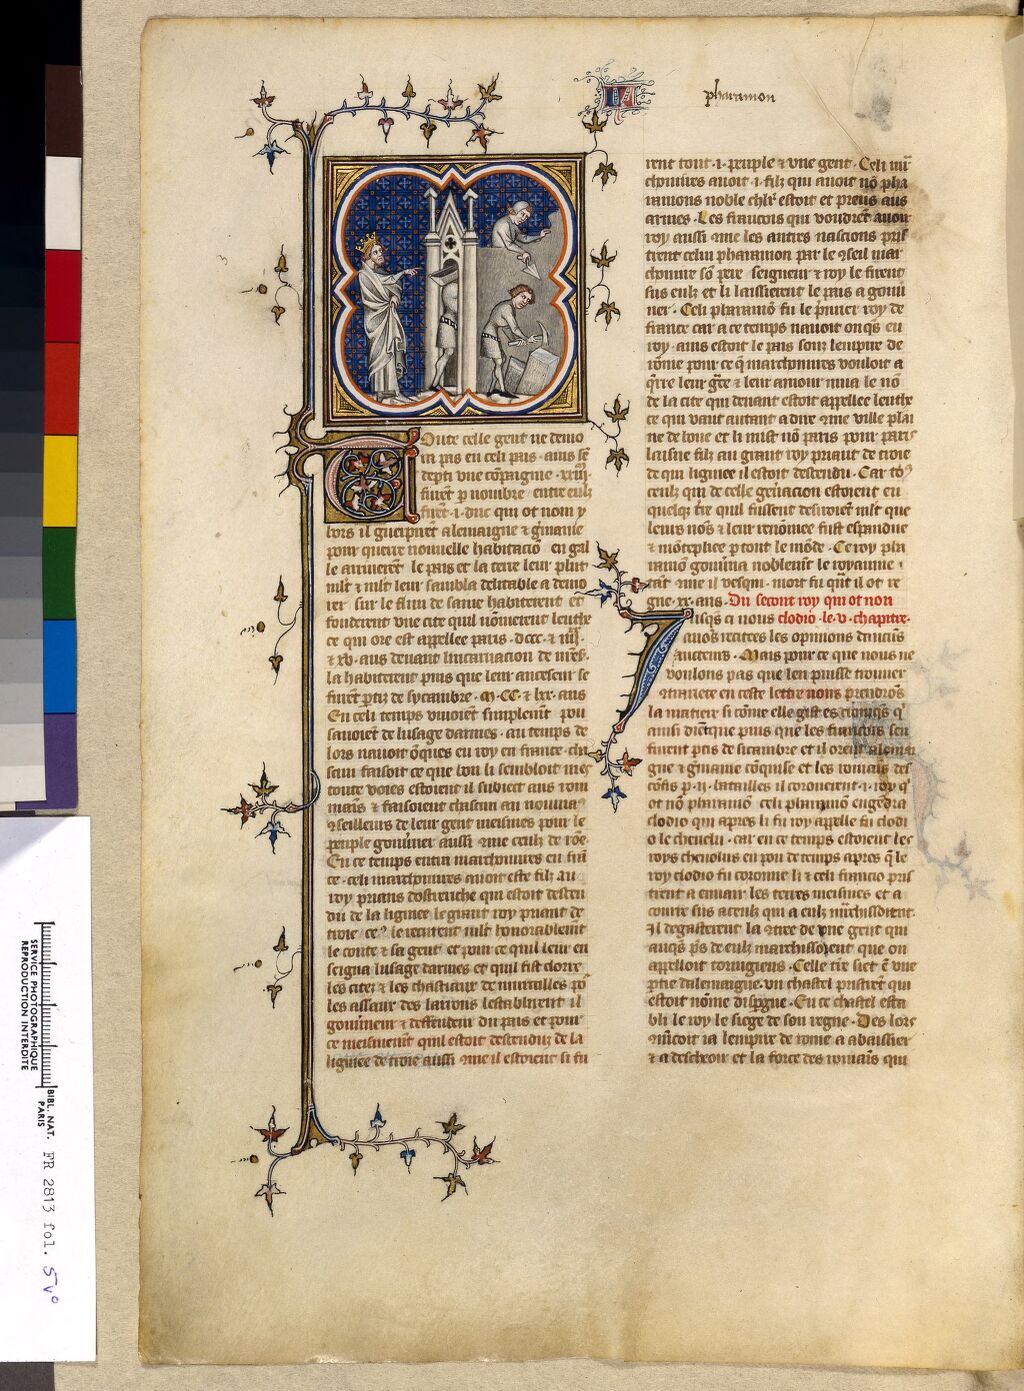 pharamon
Toute celle gent ne demo
ra pas en celi pais · ains sē
depti une cōpaignie · xxiij ·
furēt p nombre · entre eulz
furēt · i · duc qui ot nom y
bors il guerpirēt alemaigne & gmanie
pour querre nouuelle habitaciō en gal
le arriuerēt le pais et la terre leur plut
mlt & mlt leur sambla delitable a demo
rer sur le flun de saine habiterent et
fonderent une cite quil nōmerent leuthe
ce qui ore est appellee paris · dccc · & iiij ·
& xv · ans deuant lincarnacion de nres ·
la habiterent puis que leur ancesseur se
furēt ptiz de sycambre · m · cc · & lxx · ans
En celi temps viuoiēt simplemt pou
sauoiēt de lusage darmes · au temps de
lors nauoit ōques eu roy en france · cha
scun faisoit ce que bon li sembloit mes
toute voies estoient il subiect aus rom
mains & faisoient chascun an nouuiaz
9seilleurs de leur gent meismes pour le
peuple gouuner aussi 9me ceulz de rōē ·
En ce temps entra marchomires en frā
ce · celi marchomires auoit este filz au
roy prians dosteriche qui estoit descen
du de la lignee le grant roy priant de
troie le recurent mlt honorablemt
le conte & sa gent et pour ce quil leur en
seigna lusage darmes et quil fist clorre
les citez & les chastiaux de murailles pō
les assaux des larrons lestablirent il
gouuneur & deffendeur du pais et pour
ce meismemt quil estoit descenduz de la
lignee de troie aussi 9me il estoient si fu
rent tout · i · peuple & une gent · Celi mar
chomires auoit · i · filz qui auoit nō pha
ramons noble chlr estoit et preus aus
armes · Les francois qui voudrēt auoir
roy aussi 9me les autres nascions pris
trent celui pharamon par le 9seil mar
chomire sō pere seigneur & roy le firent
sus eulz et li laissierent le pais a gouu
ner · Celi pharamō fu le pmier roy de
france car a ce temps nauoit onqs eu
roy · ains estoit le pais souz lempire de
rōme pour ce q marchomires vouloit a
qrre leur gce & leur amour mua le nō
de la cite qui deuant estoit appellee leuthe
ce qui vaut autant a dire 9me ville plai
ne de boue et li mist nō paris pour paris
laisne filz au grant roy priant de troie
de qui lignee il estoit descendu · Car to9
ceulz qui de celle gnacion estoient en
quelqz tre quil fussent desiroiēt mlt que
leurs nōs & leur renōmee fust espandue
& mōteplice p tout le mōde · Ce roy pha
ramō gouuna noblemt le royaume ·
tāt 9me il vesqui · mort fu qnt il ot re
gne · xx · ans · Du secont roy qui ot non
clodio · le · v · chapitre ·
Iusqs ci nous
auōs recitees les opinions daucuns
aucteurs · Mais pour ce que nous ne
voulons pas que len puisse trouuer
9trariete en ceste lettre nous prendrōs
la matiere si cōme elle gist es croniqs q
ainsi diēt que puis que les francois seu
furent ptis de sicambre et il orent alemai
gne & gmanie cōquise et les romains des
cōfis p · ij · batailles il coronerent · i · roy q
ot nō pharamō celi pharamō engēdra
clodio qui apres li fu roy appelle fu clodi
o le cheuelu · car en ce temps estoient les
roys cheuelus en pou de temps apres q le
roy clodio fu coronne li & celi francio pris
trent a enuair les terres meismes et a
courre sus a ceulz qui a eulz marchissoient ·
Il degasterent la 9tree de une gent qui
auqs ps de eulz marchissoient que on
appelloit toringiens · Celle tre siet ē une
ptie dalemaigne · un chastel pristrēt qui
estoit nōme dispgne · En ce chastel esta
bli le roy le siege de son regne · Des lors
9mencoit ia lempire de rome a abaissier
& a descheoir et la force des romains qui
SERVICE PHOTOGRAPHIQUE
REPRODUCTION INTERDITE
BIBL. NAT.
PARIS
FR 2813 fol. 5vo